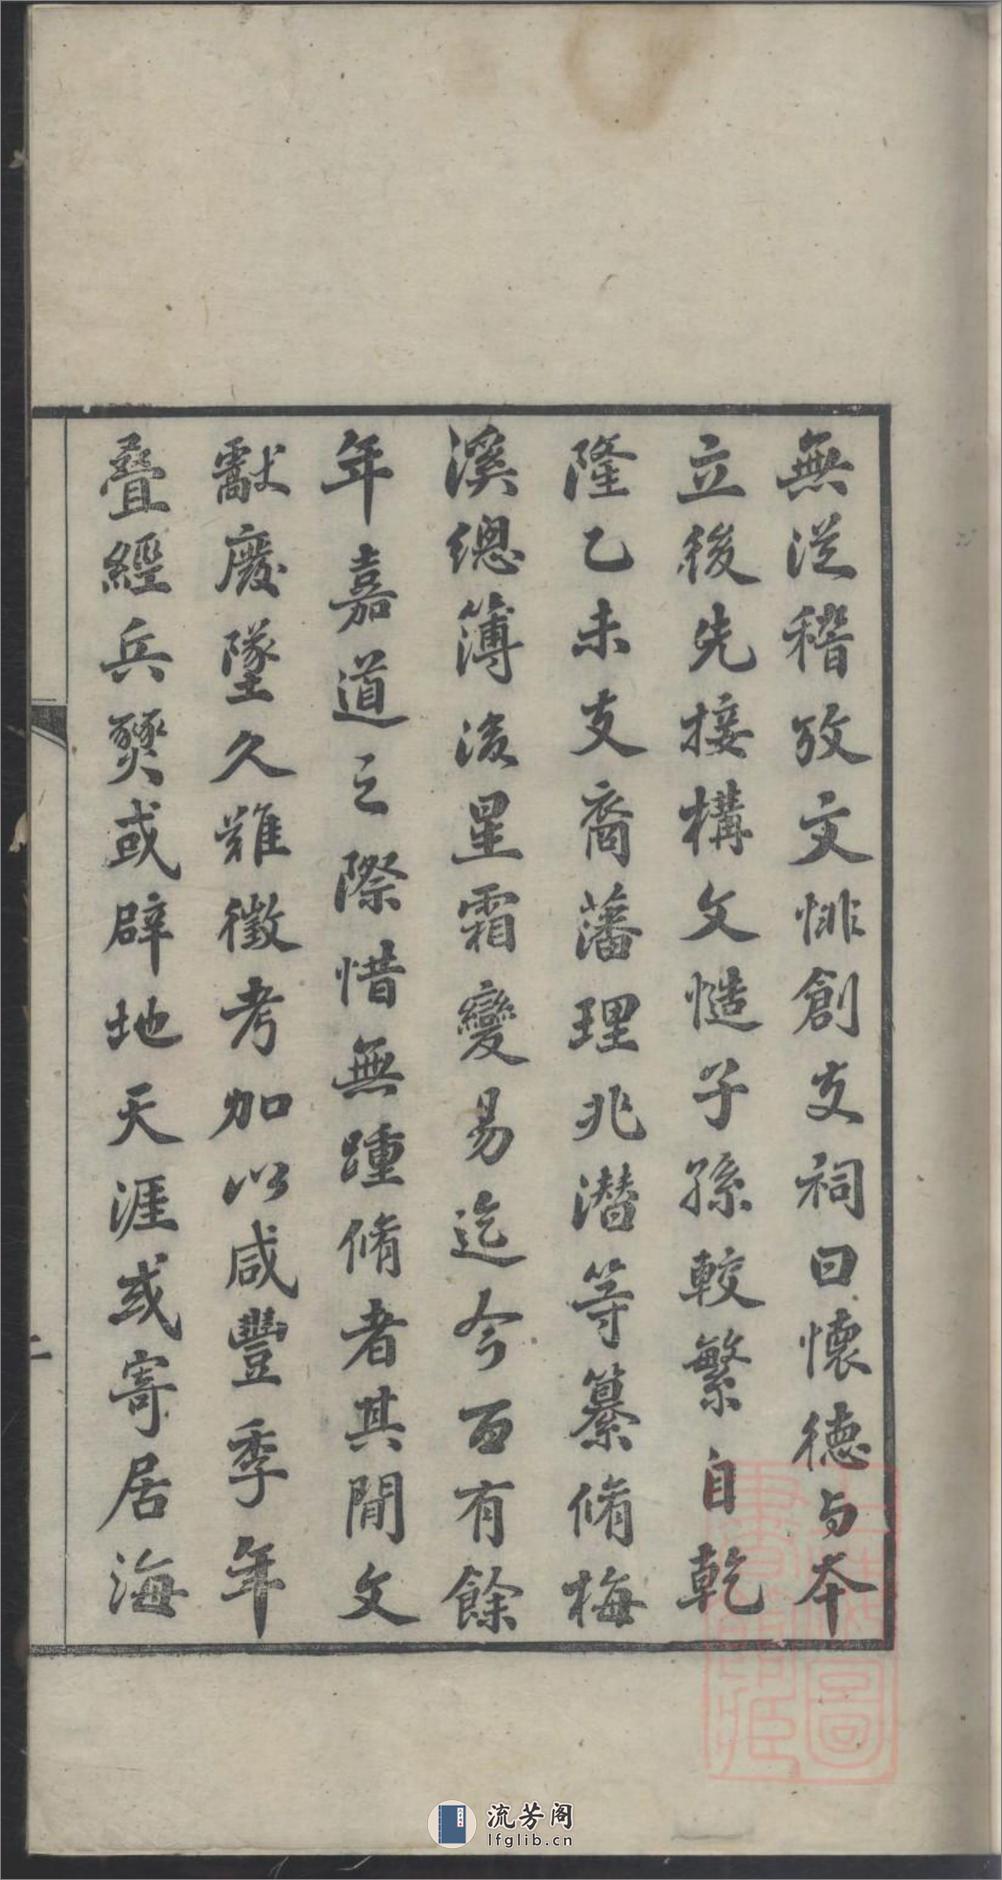 無從稽攷文悱創支祠曰懷德与本
立後先接構文慥子孫較繁自乾
隆乙未支裔藩理兆潛等纂脩梅
溪總簿後星霜變易迄今百有餘
年嘉道之際惜無踵脩者其間文
獻廢墜久難徵考加以咸豐季年
疊經兵燹或辟地天涯或寄居海
流芳阁
lfglib.cn